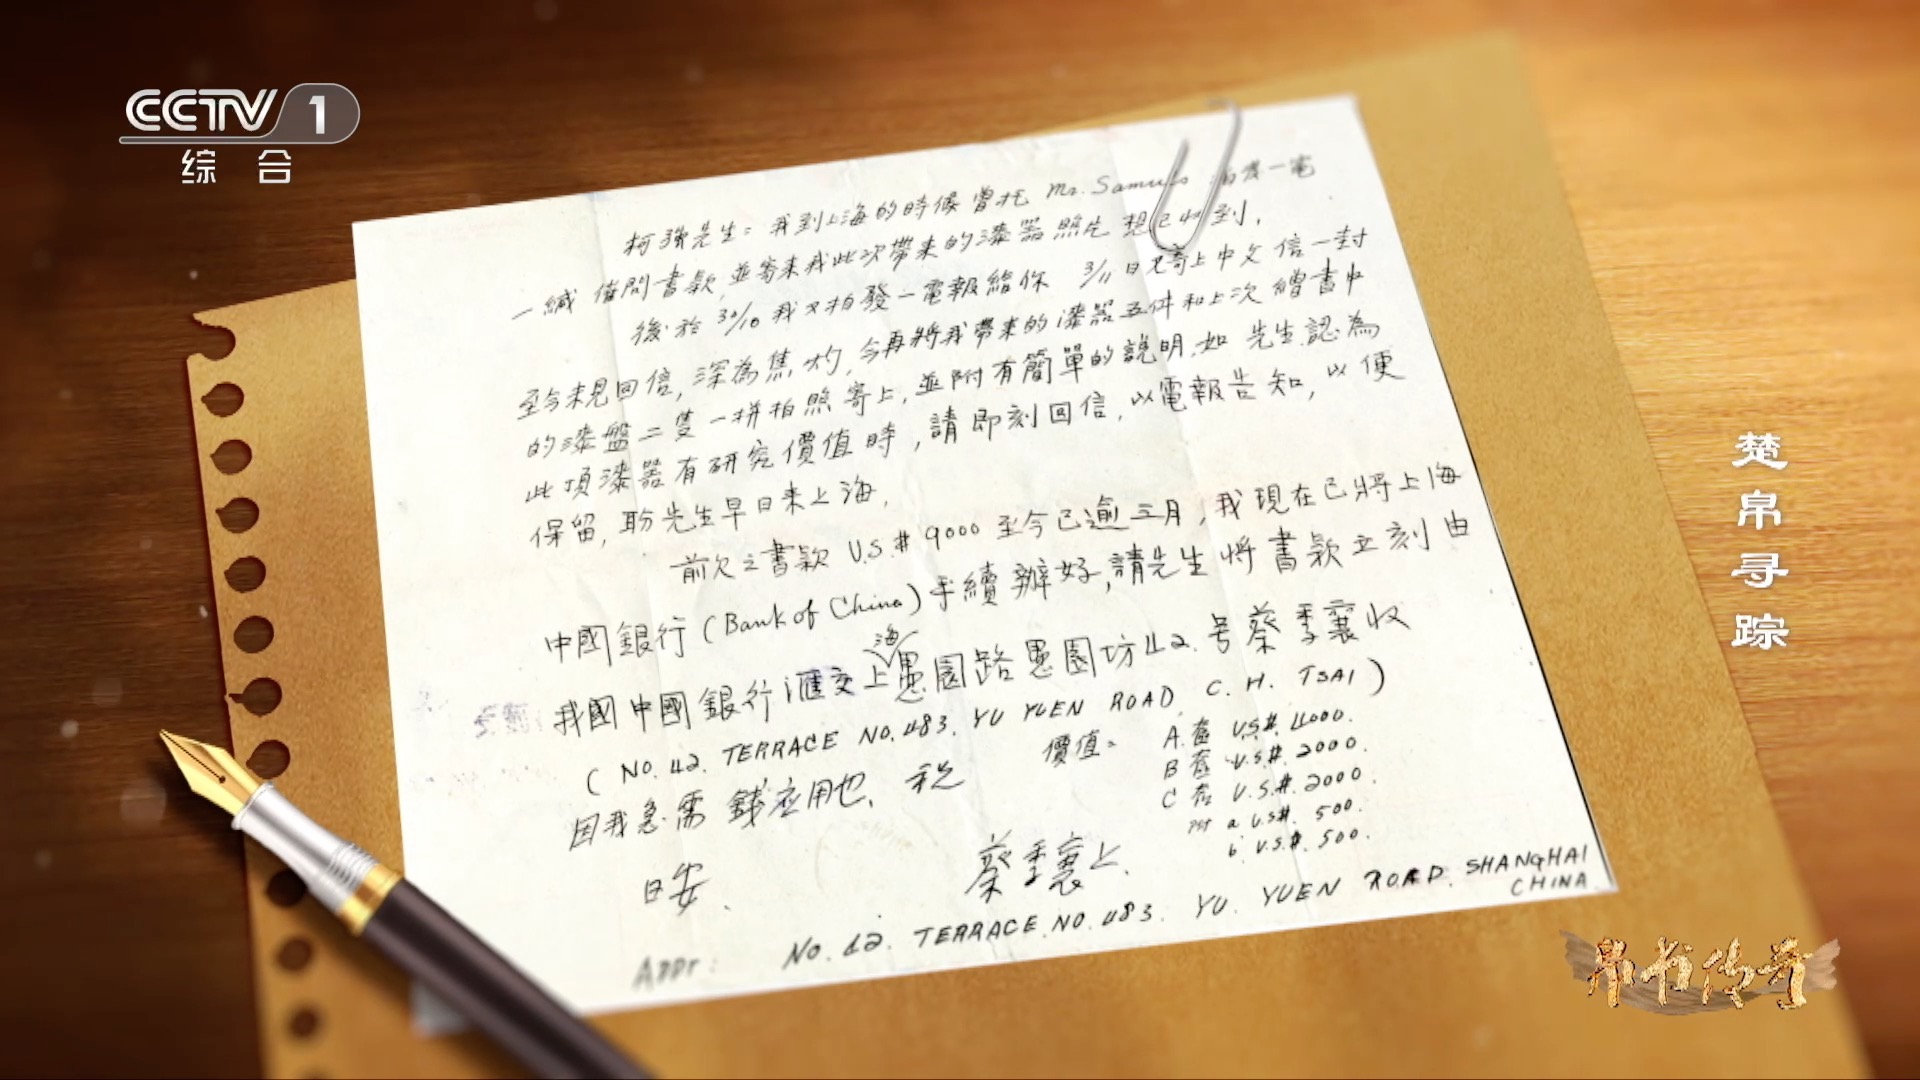 CCTV 1
综合
柯强先生：我到上海的時候曾托 Mr. Samuels 一電
一緘 催問書款，並寄来我此次帶来的漆器照片 想已收到，
後於 30/10 我又拍發一電報給你 3/11 日又寄上中文信一封
至今未見回信，深為焦灼，今再將我帶来的漆器五件和上次繒書中
的漆盤二隻一拼拍照寄上，並附有簡單的說明，如 先生認為
此項漆器有研究價值時，請即刻回信，以電報告知，以便
保留，盼先生早日来上海，
前次之書款 U.S.# 9000 至今已逾三月，我現在已將上海
中國銀行 (Bank of China) 手續辦好，請先生將書款立刻由
我國中國銀行滙交上海愚園路愚園坊42.号蔡季襄收
( NO. 42. TERRACE NO. 483. YU YUEN ROAD. C. H. TSAI )
因我急需錢应用也， 祝
日安.
價值：
A. U.S.#. 4000.
B U.S.#. 2000.
C U.S.#. 2000.
a U.S.#. 500.
b. U.S.#. 500.
蔡季襄上.
Addr: No. 42. TERRACE. NO. 483. YU. YUEN ROAD. SHANGHAI
CHINA
楚帛寻踪
帛书传奇